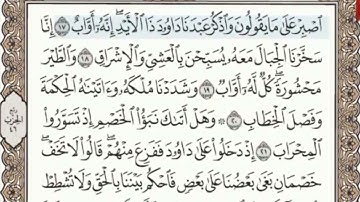 ٱصۡبِرۡ عَلَىٰ مَا يَقُولُونَ وَٱذۡكُرۡ عَبۡدَنَا دَاوُۥدَ ذَا ٱلۡأَيۡدِۖ إِنَّهُۥٓ أَوَّابٌ ١٧ إِنَّا
سَخَّرۡنَا ٱلۡجِبَالَ مَعَهُۥ يُسَبِّحۡنَ بِٱلۡعَشِيِّ وَٱلۡإِشۡرَاقِ ١٨ وَٱلطَّيۡرَ
مَحۡشُورَةٗۖ كُلّٞ لَّهُۥٓ أَوَّابٞ ١٩ وَشَدَدۡنَا مُلۡكَهُۥ وَءَاتَيۡنَٰهُ ٱلۡحِكۡمَةَ
وَفَصۡلَ ٱلۡخِطَابِ ٢٠ ۞ وَهَلۡ أَتَىٰكَ نَبَؤُاْ ٱلۡخَصۡمِ إِذۡ تَسَوَّرُواْ
ٱلۡمِحۡرَابَ ٢١ إِذۡ دَخَلُواْ عَلَىٰ دَاوُۥدَ فَفَزِعَ مِنۡهُمۡۖ قَالُواْ لَا تَخَفۡۖ
خَصۡمَانِ بَغَىٰ بَعۡضُنَا عَلَىٰ بَعۡضٖ فَٱحۡكُم بَيۡنَنَا بِٱلۡحَقِّ وَلَا تُشۡطِطۡ